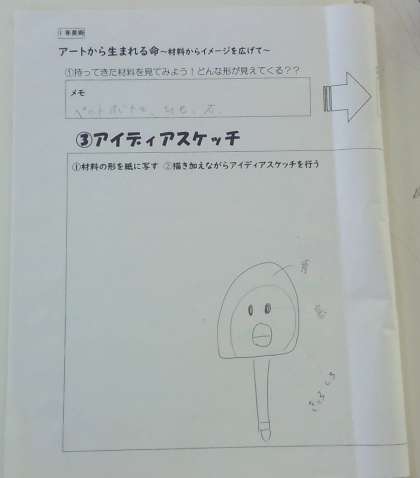 1年美術
アートから生まれる命～材料からイメージを広げて～
①持ってきた材料を見てみよう！どんな形が見えてくる？？
メモ
ペットボトル、
③アイディアスケッチ
①材料の形を紙に写す ②描き加えながらアイディアスケッチを行う